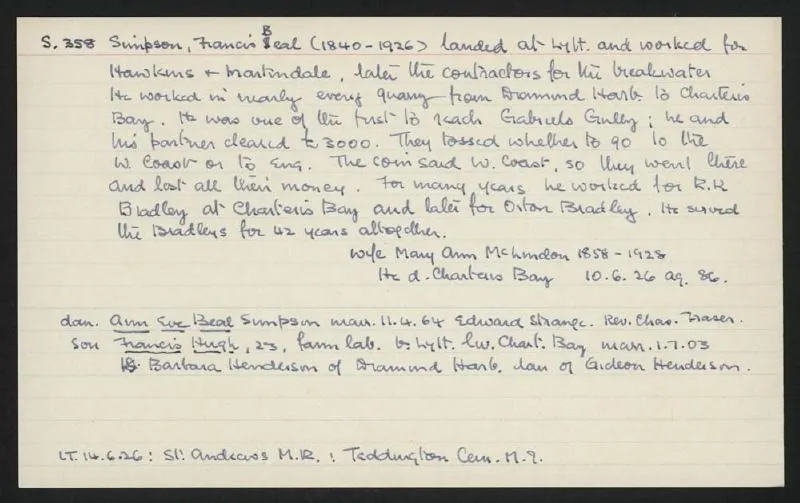 S. 358 Simpson, Francis Beal (1840-1926) landed at Lytt. and worked for
Hawkins + Martindale, later the contractors for the breakwater
He worked in nearly every quarry from Diamond Harb. to Charteris
Bay. He was one of the first to reach Gabriels Gully; he and
his partner cleared £3000. They tossed whether to go to the
W. Coast or to Eng. The coin said W. Coast, so they went there
and lost all their money. For many years he worked for R.R
Bradley at Charteris Bay and later for Orton Bradley. He served
the Bradleys for 42 years altogether.
wife Mary Ann McLindon 1858-1928
He d. Charteris Bay 10.6.26 ag. 86.
dau. Ann Eve Beal Simpson marr. 11.4.64 Edward Strange. Rev. Chas. Fraser.
son Francis Hugh, 23, farm lab. b. Lytt. lw. Chart. Bay marr. 1.7.03
to Barbara Henderson of Diamond Harb. dau of Gideon Henderson.
LT. 14.6.26: St. Andrews M.R.: Teddington Cem. M.I.